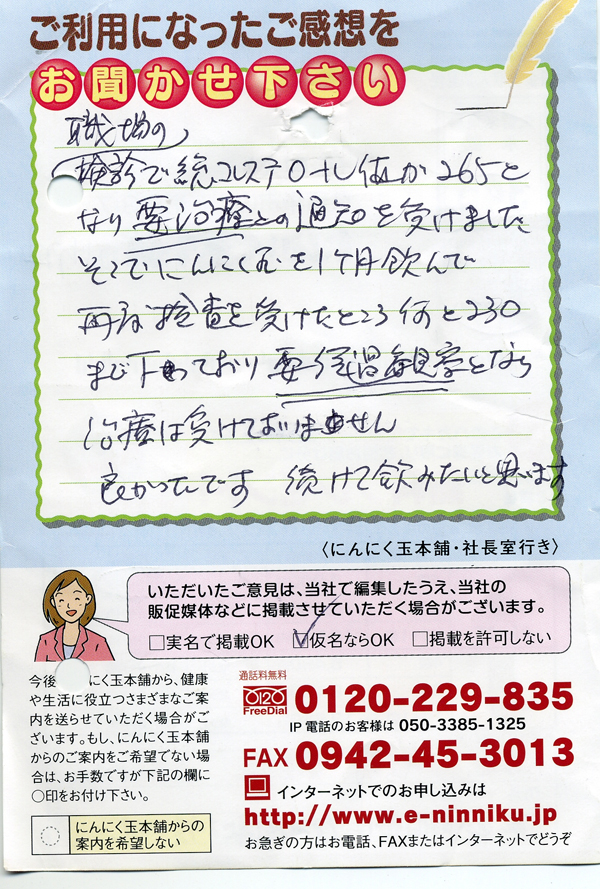 ご利用になったご感想を
お聞かせ下さい
職場の
検診で総コレステロール値が265と
なり要治療との通知を受けました
そこでにんにく玉を1ヶ月飲んで
再度検査を受けたところ何と230
まで下っており要経過観察となり
治療は受けておりません
良かったです 続けて飲みたいと思います
〈にんにく玉本舗・社長室行き〉
いただいたご意見は、当社で編集したうえ、当社の
販促媒体などに掲載させていただく場合がございます。
□実名で掲載OK ☑仮名ならOK □掲載を許可しない
今後 にく玉本舗から、健康
や生活に役立つさまざまなご案
内を送らせていただく場合がご
ざいます。もし、にんにく玉本舗
からのご案内をご希望でない場
合は、お手数ですが下記の欄に
○印をお付け下さい。
にんにく玉本舗からの
案内を希望しない
通話料無料
FreeDial 0120-229-835
IP電話のお客様は 050-3385-1325
FAX 0942-45-3013
インターネットでのお申し込みは
http://www.e-ninniku.jp
お急ぎの方はお電話、FAXまたはインターネットでどうぞ